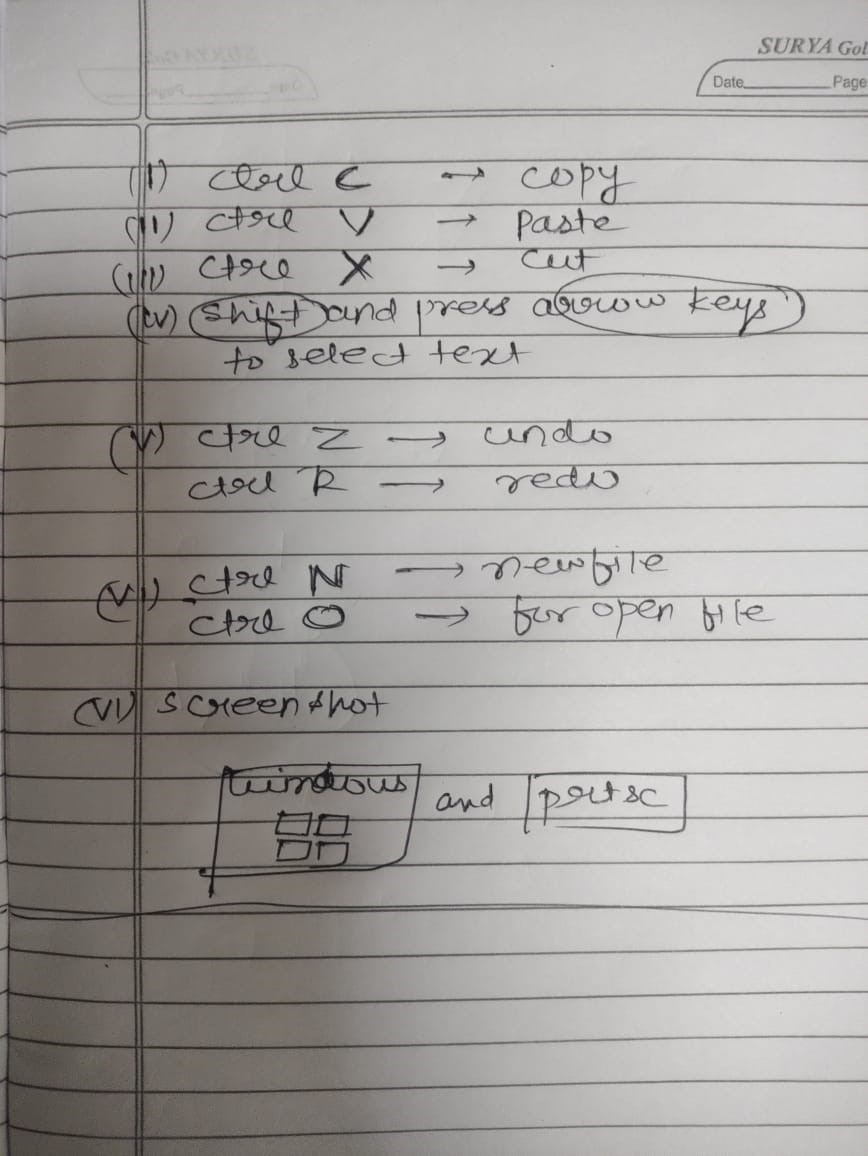 SURYA Gol
Date Page
(i) ctrl C → copy
(ii) ctrl V → Paste
(iii) ctrl X → cut
(iv) shift and press arrow keys
to select text
(v) ctrl Z → undo
ctrl R → redo
(vi) ctrl N → new file
ctrl O → for open file
(vi) screenshot
windows and prtsc